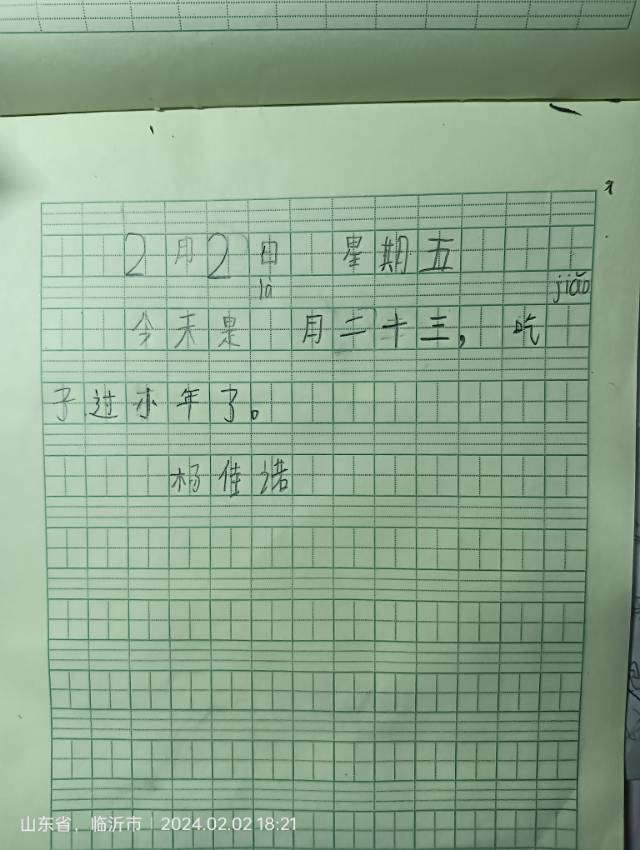 2月2日 星期五
là jiǎo
今天是 月二十三，吃
子过小年了。
杨佳诺
山东省，临沂市 2024.02.02 18:21